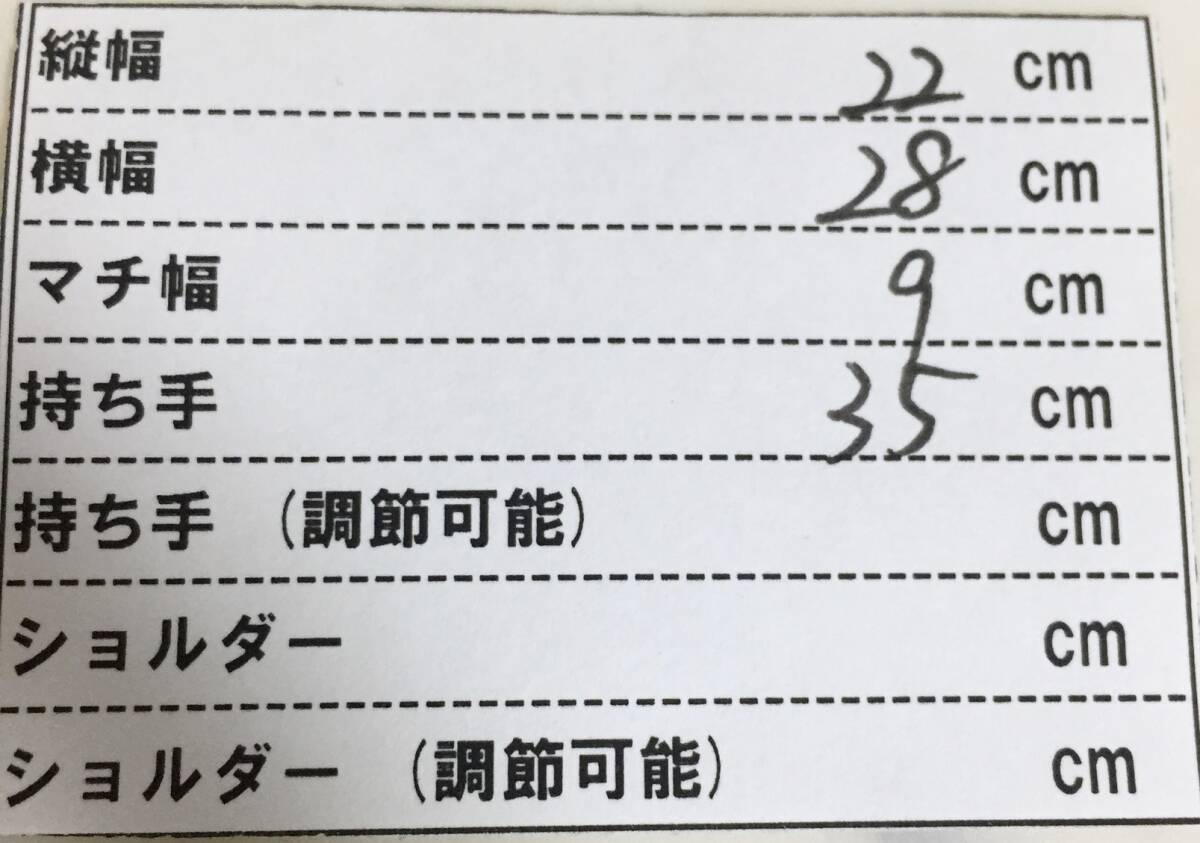 縦幅 22 cm
横幅 28 cm
マチ幅 9 cm
持ち手 35 cm
持ち手 (調節可能) cm
ショルダー cm
ショルダー (調節可能) cm